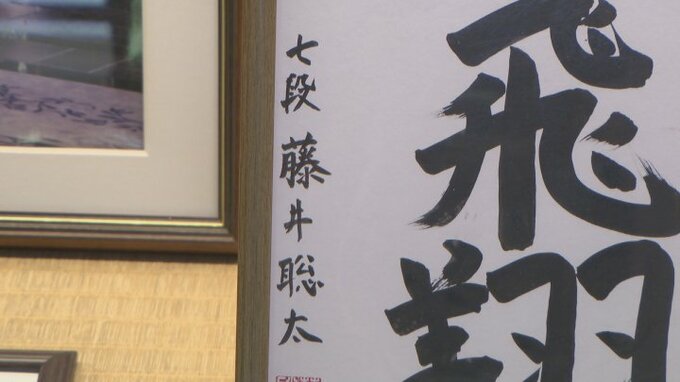 飛翔
七段 藤井聡太